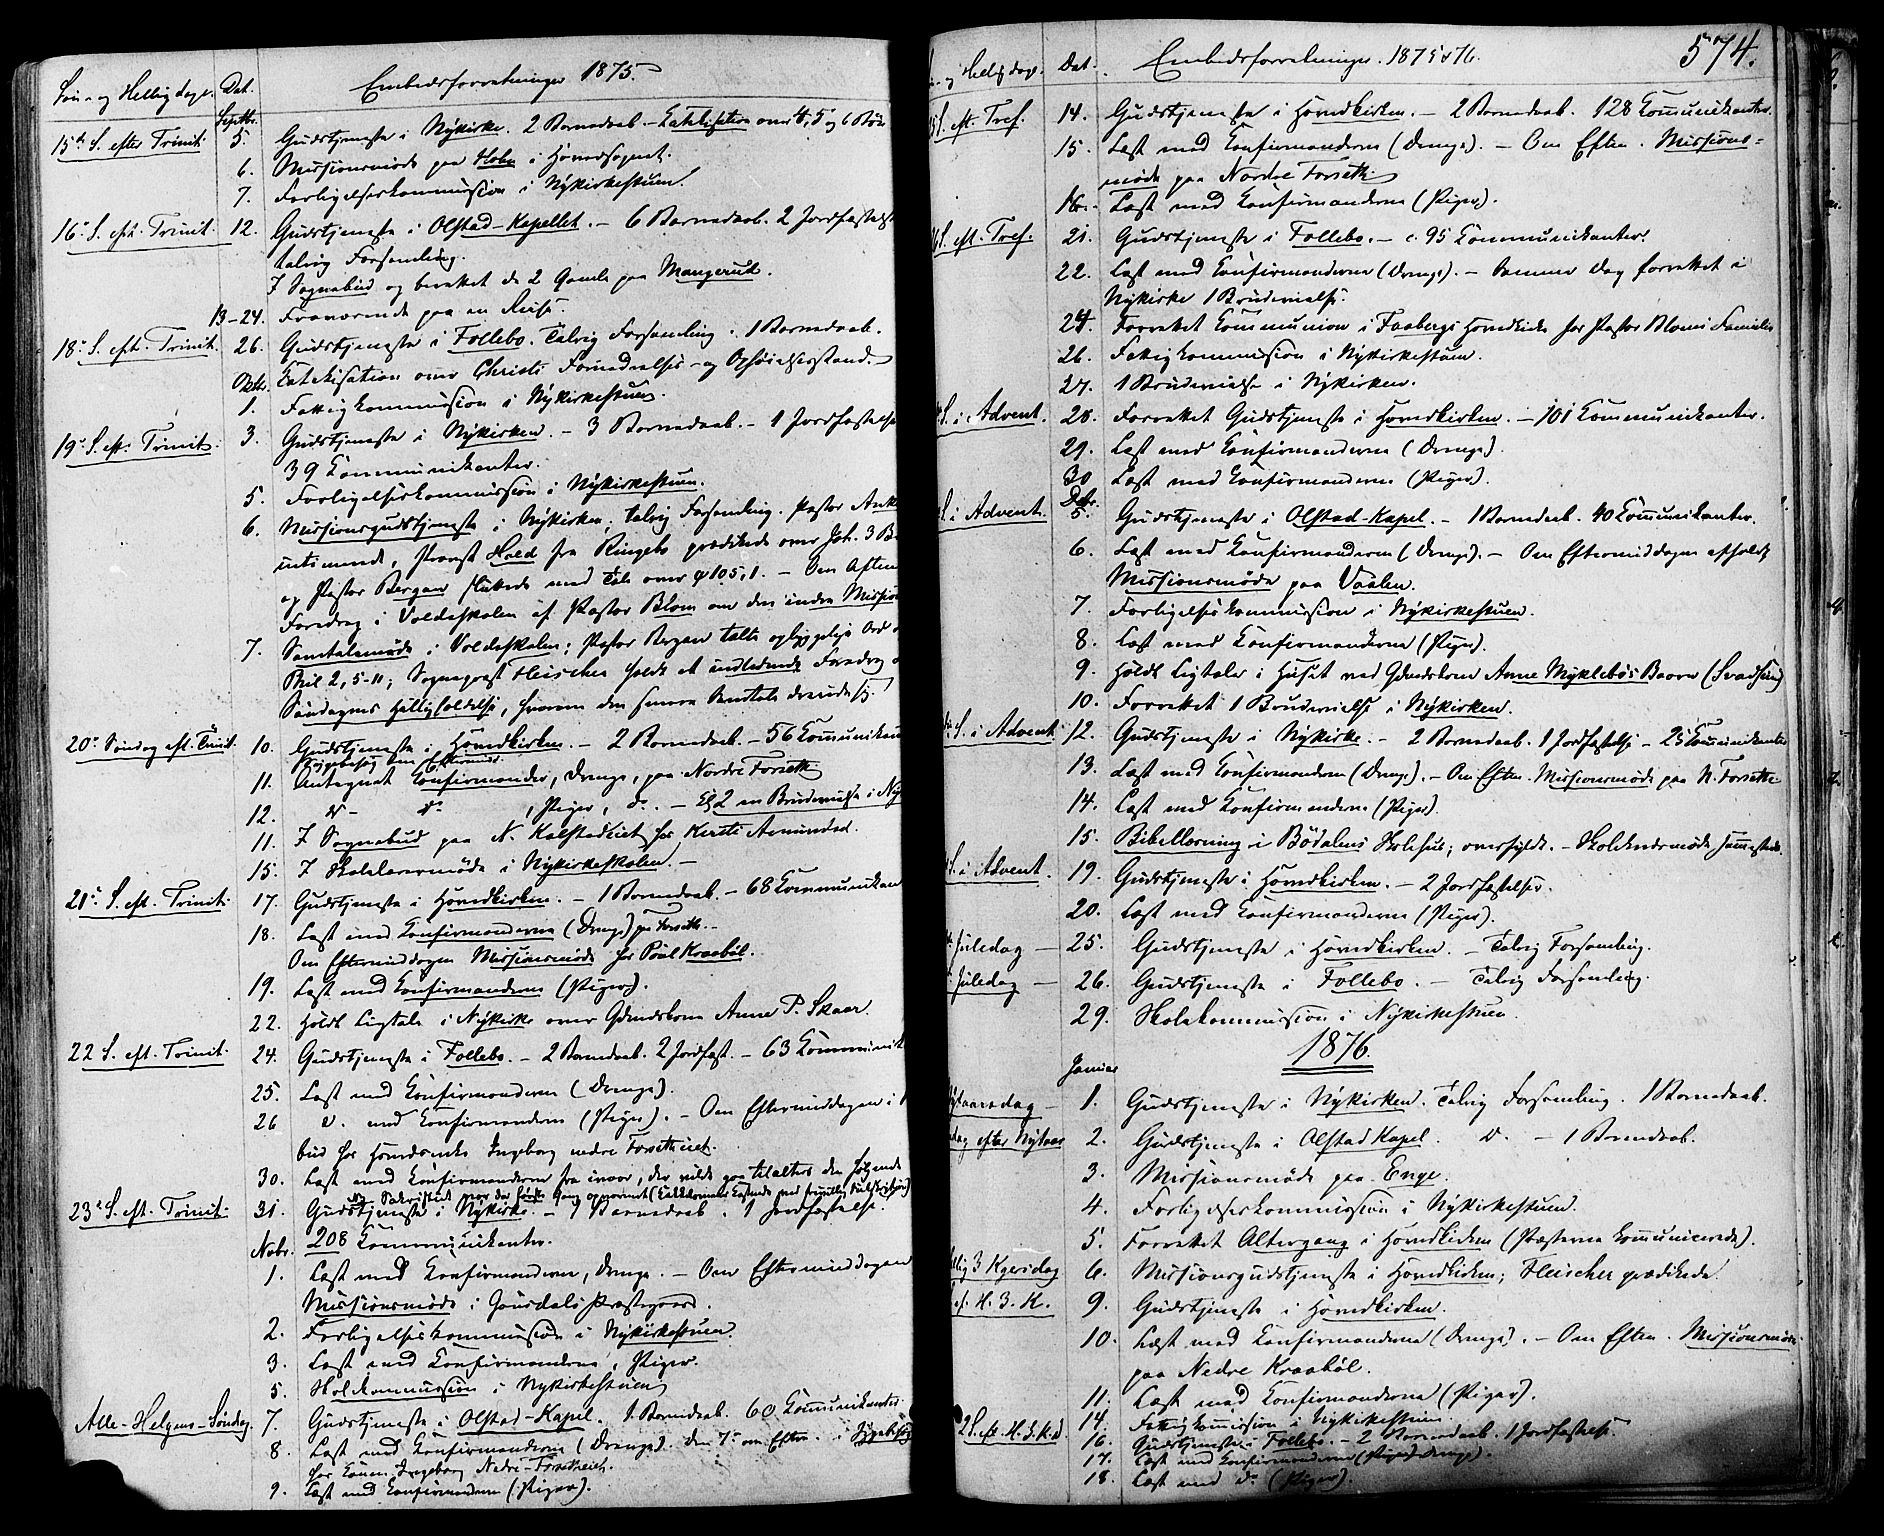 Søn- og Hellig dage. Dat. Embedsforretninger 1875.
Septbr.
15de S. efter Trinit. 5. Gudstjeneste i Nykirke. 2 Barnedaab. - Katekisation over 4, 5 og 6 Bøn
6. Missionsmøde paa Hobe i Hovedsognet.
7. Forligelseskommission i Nykirkestuen.
16de S. eft. Trinit. 12. Gudstjeneste i Olstad-Kapellet. - 6 Barnedaab. 2 Jordfæstelser
talrig Forsamling.
I Sognebud og berettet de 2 Gamle paa Mangerud.
13-24. Fraværende paa en Reise.
18de S. eft. Trinit. 26. Gudstjeneste i Follebo. Talrig Forsamling. 1 Barnedaab.
Katekisation over Christi Fornedrelses- og Ophøielsesstand.
Oktbr.
1. Fattigkommission i Nykirkestuen.
19de S. eft. Trinit. 3. Gudstjeneste i Nykirken. - 3 Barnedaab. - 1 Jordfæstelse
39 Kommunikanter.
5. Forligelseskommission i Nykirkestuen.
6. Missionsgudstjeneste i Nykirken; talrig Forsamling. Pastor
intimerede, Provst Hald fra Ringebo prædikede over Joh. 3
og Pastor Bergan sluttede med Tale over ψ 105,1. - Om Aften
Foredrag i Voldeskolen af Pastor Blom om den indre Mission
7. Samtalemøde i Voldeskolen; Pastor Bergan talte opbyggelige Ord
Phil 2, 5-11; Sogneprest Heischer holdt et indledende Foredrag
Søndagens Helligholdelse, hvorom den senere Samtale dreiede sig.
20de Søndag eft. Trinit. 10. Gudstjeneste i Hovedkirken. - 2 Barnedaab. - 56 Kommunikan
Sygebesøg om Eftermid.
11. Antegnet Konfirmander, Drenge, paa Nordre Forseth
12. do - do, Piger, do. - 2 Brudevielse i Ny
11. I Sognebud paa N. Kalstadeiet for Kersti Amundsd.
15. I Skolelærermøde i Nykirkeskolen. -
21de S. eft. Trinit. 17. Gudstjeneste i Hovedkirken. - 1 Barnedaab. - 68 Kommunikan
18. Læst med Konfirmanderne (Drenge) paa Forseth. -
Om Eftermiddagen Missionsmøde hos Poul Kraabøl.
19. Læst med Konfirmanderne (Piger).
22. Holdt Ligtale i Nykirke over Gdmdskone Anne P. Skaar.
22 S. eft. Trinit. 24. Gudstjeneste i Follebo. - 2 Barnedaab. 2 Jordfæst. - 63 Kommunik
25. Læst med Konfirmanderne (Drenge).
26 do. med Konfirmanderne (Piger). - Om Eftermiddagen i
bud for Ingeborg nedre Forsetheiet.
30. Læst med Konfirmanderne fra ivaar, der vilde gaa tilalters den følgende
Ny Sakristied var for første Gang opvarmet
23de S. eft. Trinit. 31. Gudstjeneste i Nykirke. - 1 Barnedaab. 1 Jordfæstelse.
208 Kommunikanter.
Novbr.
1. Læst med Konfirmanderne, Drenge. - Om Eftermiddagen
Missionsmøde i Gausdals Præstegaard.
2. Forligelseskommission i Nykirkestuen.
3. Læst med Konfirmanderne, Piger.
5. Skolekommission i Nykirkestuen
Alle-Helgens-Søndag. 7. Gudstjeneste i Olstad-Kapel. 1 Barnedaab. 60 Kommunikanter
8. Læst med Konfirmanderne (Drenge). Den 7de om Efterm. i Sygebesøg
hos Konen Ingeborg Nedre-Forsetheiet.
9. Læst med Konfirmanderne (Piger).
og Helligdage. Dat. Embedsforretninger. 1875 & 76. 574.
S. eft. Tref. 14. Gudstjeneste i Hovedkirken. - 2 Barnedaab. 128 Kommunikanter.
15. Læst med Konfirmanderne (Drenge). - Om Efterm. Missions-
møde paa Nordre Forseth.
16. Læst med Konfirmanderne (Piger).
S. eft. Tref. 21. Gudstjeneste i Follebo. - c. 95 Kommunikanter.
22. Læst med Konfirmanderne (Drenge). - Samme Dag forrettet i
Nykirke 1 Brudevielse.
24. Forrettet Kommunion i Faabergs Hovedkirke for Pastor Bloms Familie
26. Fattigkommission i Nykirkestuen.
27. 1 Brudevielse i Nykirken.
S. i Advent. 28. Forrettet Gudstjeneste i Hovedkirken. - 101 Kommunikanter.
29. Læst med Konfirmanderne (Drenge).
30 Læst med Konfirmanderne (Piger).
Dcbr.
S. i Advent. 5. Gudstjeneste i Olstad-Kapel. - 1 Barnedaab. 40 Kommunikanter.
6. Læst med Konfirmanderne (Drenge). - Om Eftermiddagen afholdt
Missionsmøde paa Vaalen.
7. Forligelseskommission i Nykirkestuen.
8. Læst med Konfirmanderne (Piger).
9. Holdt Ligtale i Huset ved Gdmdskone Anne Myklebøs Baare (Svadsum)
10. Forrettet 1 Brudevielse i Nykirken.
S. i Advent 12. Gudstjeneste i Nykirke. - 2 Barnedaab. 1 Jordfæstelse - 25 Kommunikanter
13. Læst med Konfirmanderne (Drenge). - Om Efterm. Missionsmøde paa N. Forseth
14. Læst med Konfirmanderne (Piger).
15. Bibellæsning i Bødalens Skolehus; overfyldt. - Skolelærermøde sammesteds.
S. i Advent. 19. Gudstjeneste i Hovedkirken. - 2 Jordfæstelser.
20. Læst med Konfirmanderne (Piger).
Juledag - 25. Gudstjeneste i Hovedkirken. - Talrig Forsamling.
Juledag - 26. Gudstjeneste i Follebo. - Talrig Forsamling.
29. Skolekommission i Nykirkestuen.
1876.
Januar
Nytaarsdag - 1. Gudstjeneste i Nykirken. Talrig Forsamling. 1 Barnedaab.
dag efter Nytaar 2. Gudstjeneste i Olstad Kapel. do. - 1 Barnedaab.
3. Missionsmøde paa Enge.
4. Forligelseskommission i Nykirkestuen.
5. Forrettet Altergang i Hovedkirken (Præsterne kommunicerede).
Hellig 3 Kgersdag 6. Missionsgudstjeneste i Hovedkirken; Heischer prædikede.
ef. H. 3. K. 9. Gudstjeneste i Hovedkirken.
10. Læst med Konfirmanderne (Drenge). - Om Efterm. Missionsmøde
paa Nedre Kraabøl.
11. Læst med Konfirmanderne (Piger).
14. Fattigkommission i Nykirkestuen.
2 S. eft. H. 3. K. d. 16. Gudstjeneste i Follebo. - 2 Barnedaab. 1 Jordfæstelse.
17. Læst med Konfirmanderne (Drenge).
18. Læst med do (Piger).